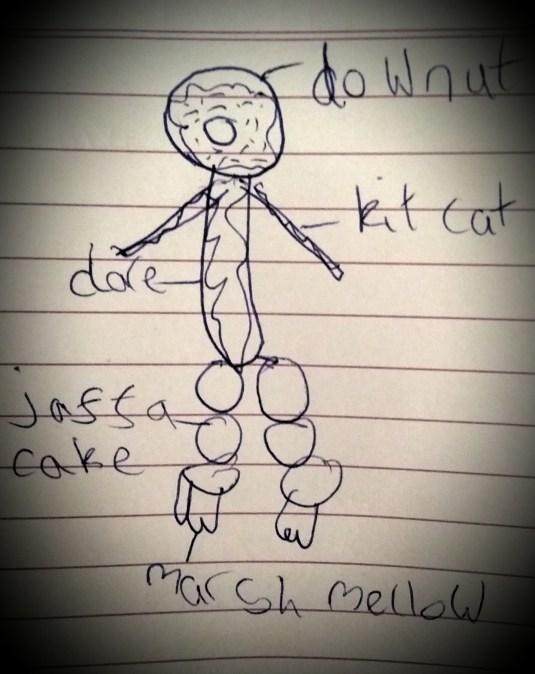 downut
kit cat
dore
jaffa
cake
marsh mellow